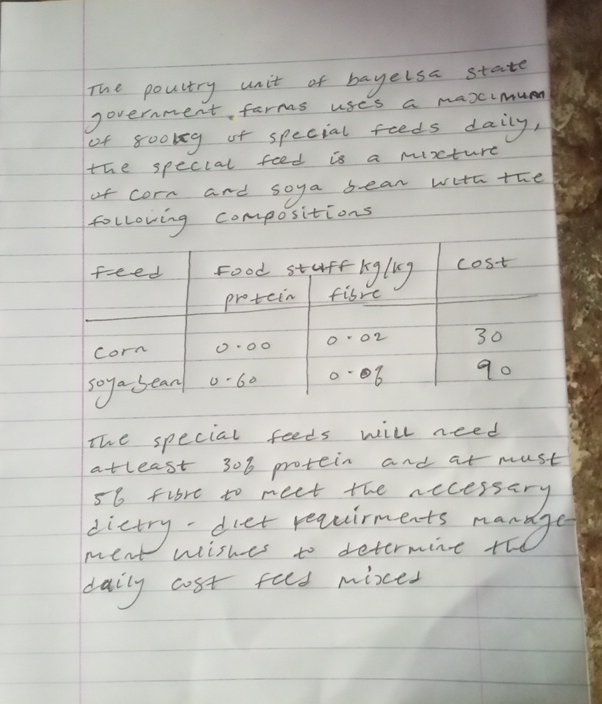 The poultry unit of bayelsa state
government farms uses a maximum
of 800kg of special feeds daily,
the special feed is a mixture
of corn and soya bean with the
following compositions
feed Food stuff kg/kg cost
protein fibre
corn 0.00 0.02 30
soya bean 0.60 0.08 90
The special feeds will need
atleast 30% protein and at must
5% fibre to meet the necessary
dietry - diet requirments manage-
ment wishes to determine the
daily cost feed mixed